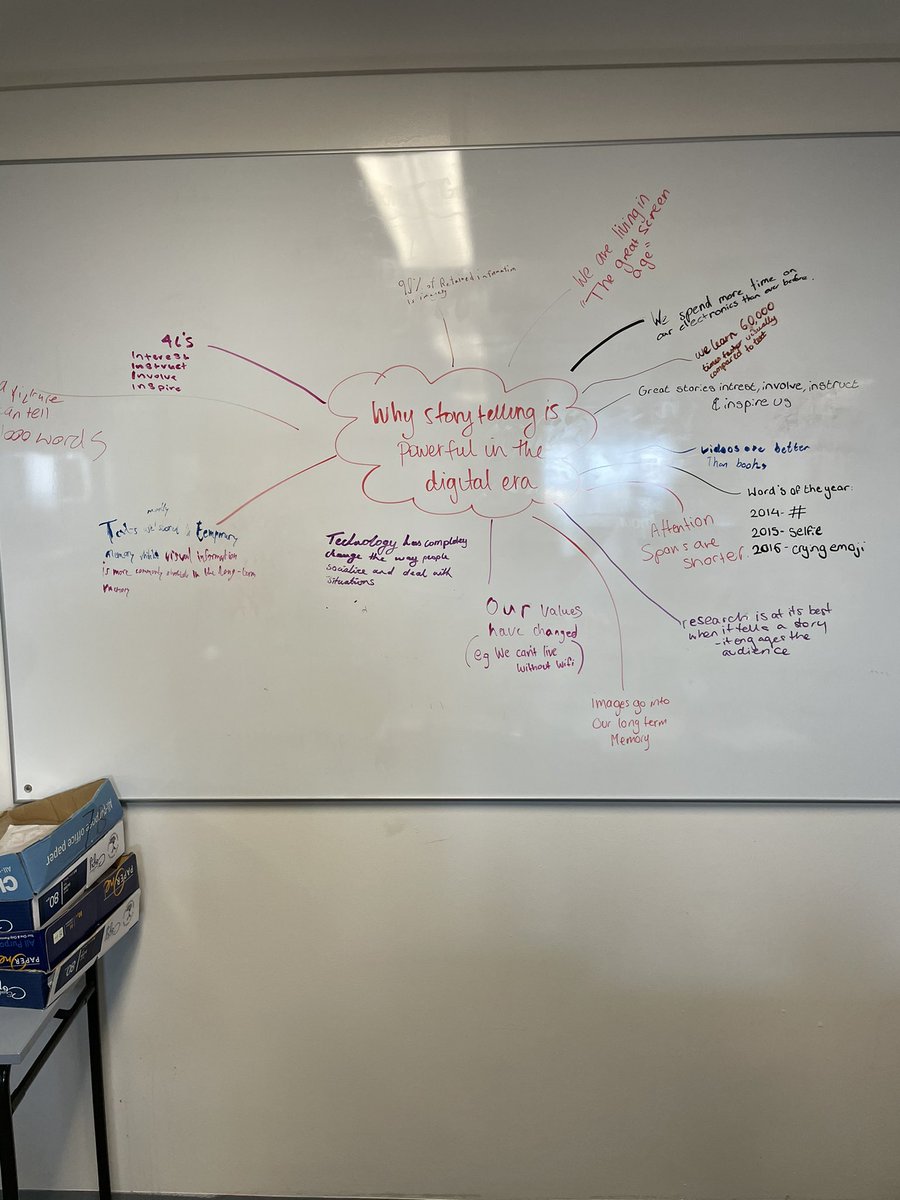 98% of Retained information
is imagery
We are living in
"The great screen
age"
We spend more time on
our electronics than ever before.
we learn 60,000
times faster visually
compared to text
Great stories intrest, involve, instruct
& inspire us
videos are better
Than books
Word's of the year:
2014- #
2015- selfie
2016- crying emoji
Attention
Spans are
shorter
research is at its best
when it tells a story
-it engages the
audience
Images go into
Our long term
Memory
Our values
have changed
(eg We can't live
without wifi)
Technology has completey
change the way people
socialise and deal with
situations
mostly
temporary
memory while visual information
is more commonly in the long-term
a picture
can tell
1000 words
4 I's
Interest
Instruct
Involve
Inspire
Why storytelling is
powerful in the
digital era
All-purpose office paper
80
PAPER One
All Purpose
PAPER One
80